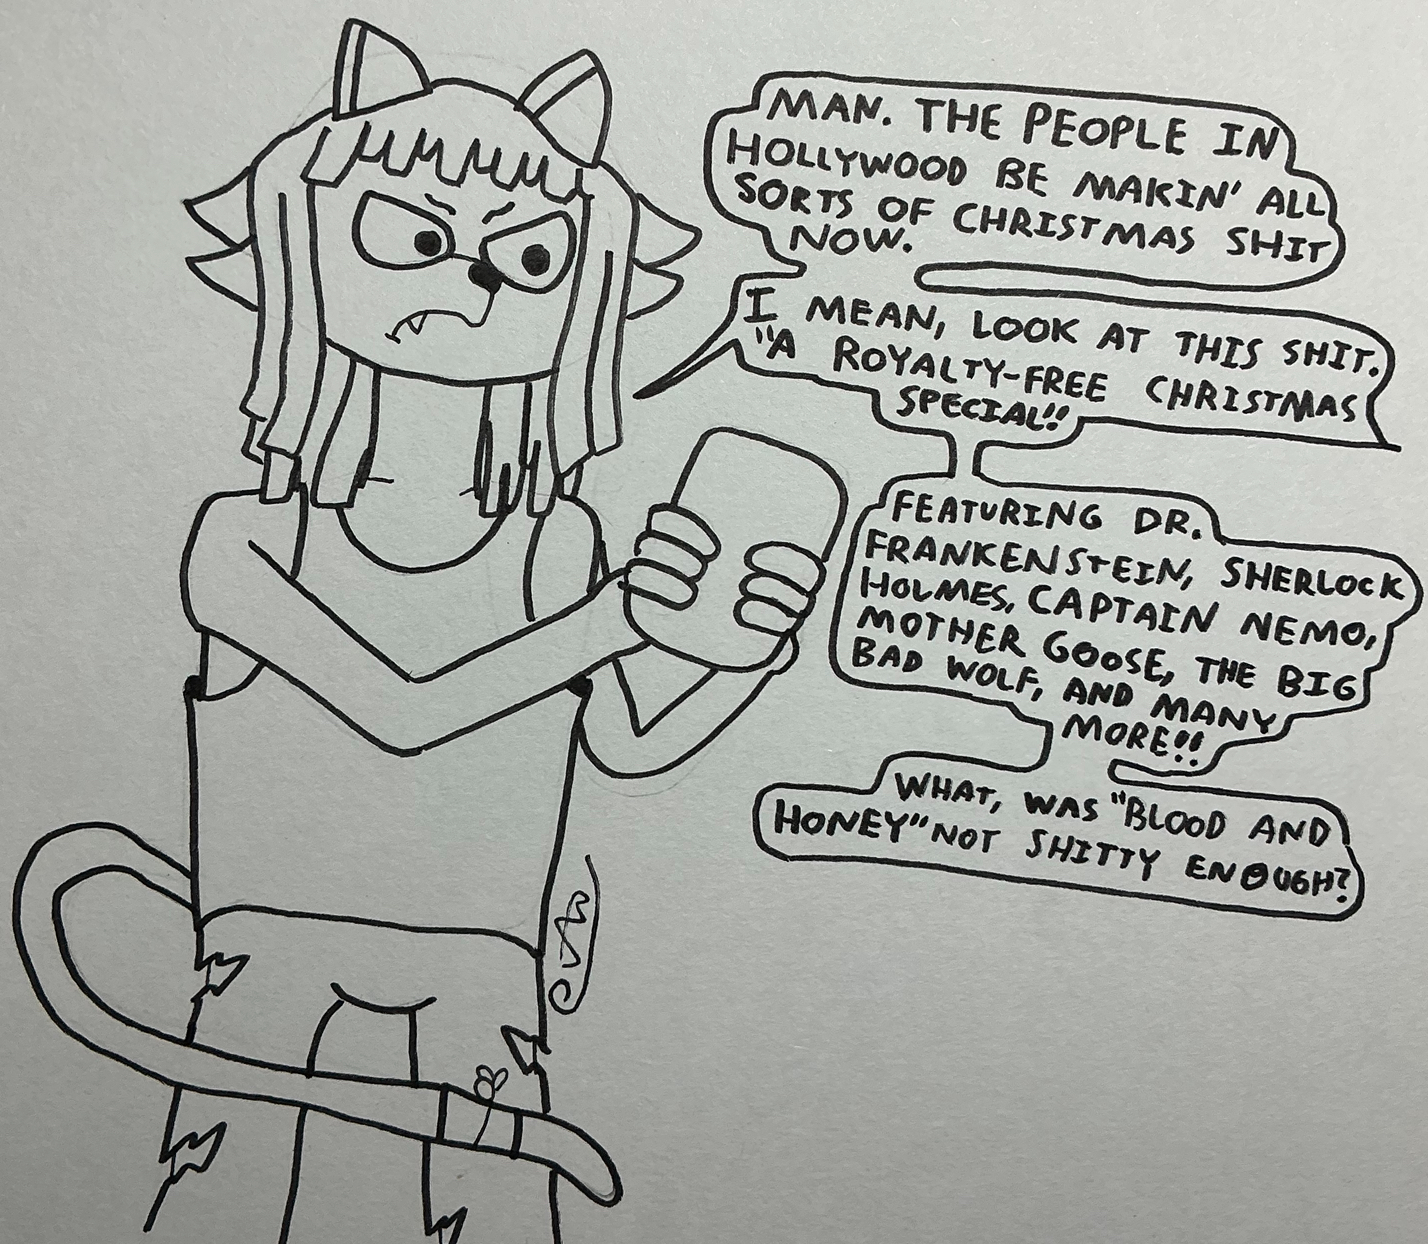 MAN. THE PEOPLE IN
HOLLYWOOD BE MAKIN' ALL
SORTS OF CHRISTMAS SHIT
NOW.
I MEAN, LOOK AT THIS SHIT.
"A ROYALTY-FREE CHRISTMAS
SPECIAL!!
FEATURING DR.
FRANKENSTEIN, SHERLOCK
HOLMES, CAPTAIN NEMO,
MOTHER GOOSE, THE BIG
BAD WOLF, AND MANY
MORE!!
WHAT, WAS "BLOOD AND
HONEY" NOT SHITTY ENOUGH?